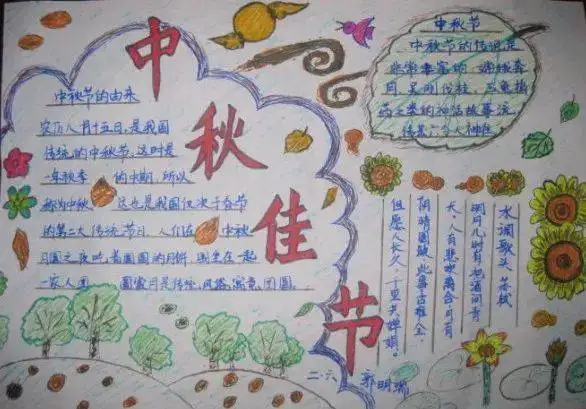 中秋佳节
中秋节的由来
农历八月十五日，是我国
传统的中秋节。这时是
一年秋季 的中期，所以
称为中秋 这也是我国仅次于春节
的第二大传统节日。人们在 中秋
月圆之夜吃着圆圆的月饼，围坐在一起
一家人团 圆赏月是传统，风俗，寓意，团圆。
中秋节
中秋节的传说是
非常丰富的，嫦娥奔
月，吴刚伐桂，玉兔捣
药之类的神话故事流
传
水调歌头 苏轼
明月几时有，把酒问青
天，人有悲欢离合，月有
阴晴圆缺，此事古难全
但愿人长久，千里共婵娟。
二·六 郭明